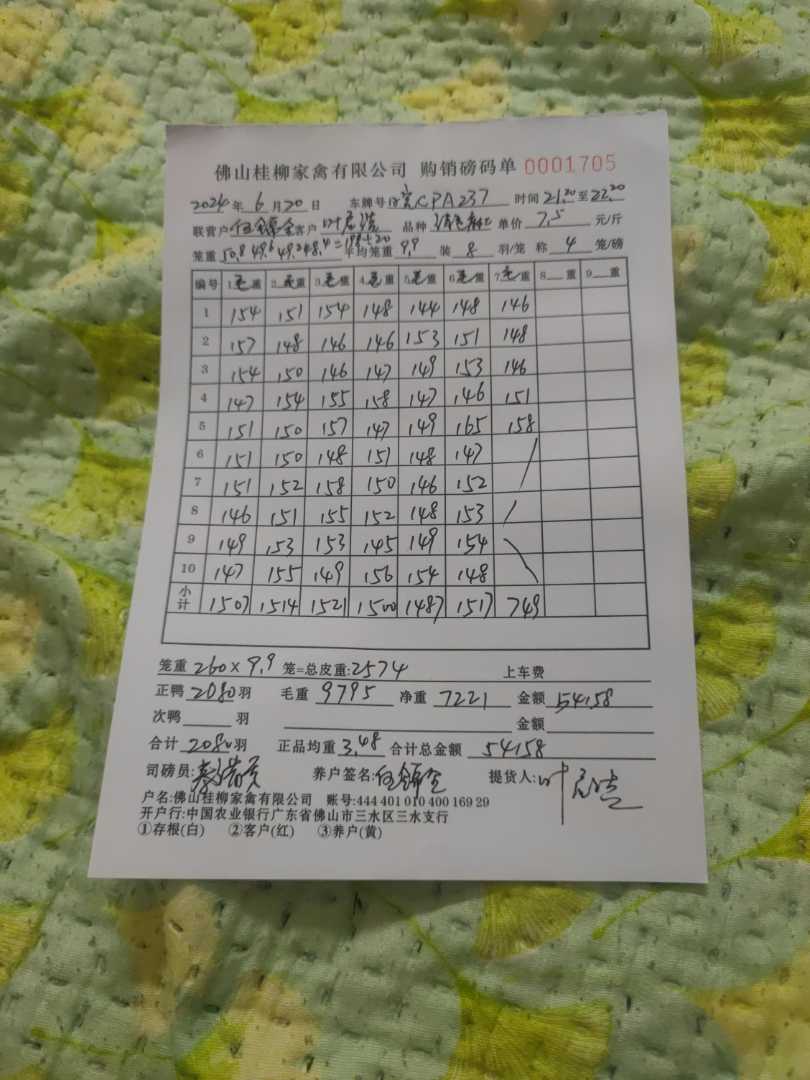 佛山桂柳家禽有限公司 购销磅码单 0001705
2024年6月20日 车牌号 CPA237 时间21:20至22:20
联营户 客户叶 品种 单价7.5元/斤
笼重50.8 49.6 49.2 48.4=198÷20 平均笼重9.9 装8羽/笼 称4笼/磅
编号 1毛重 2毛重 3毛重 4毛重 5毛重 6毛重 7毛重 8重 9重
1 154 151 154 148 144 148 146
2 157 148 146 146 153 151 148
3 154 150 146 147 149 153 146
4 147 154 155 158 147 146 151
5 151 150 157 147 149 165 158
6 151 150 148 151 148 147
7 151 152 158 150 146 152
8 146 151 155 152 148 153
9 149 153 153 145 149 154
10 147 155 149 156 154 148
小计 1507 1514 1521 1500 1487 1517 749
笼重260×9.9笼=总皮重:2574 上车费
正鸭2080羽 毛重9795 净重7221 金额54158
次鸭 羽 金额
合计2080羽 正品均重3.48 合计总金额54158
司磅员: 养户签名: 提货人:叶
户名:佛山桂柳家禽有限公司 账号:444 401 010 400 169 29
开户行:中国农业银行广东省佛山市三水区三水支行
①存根(白) ②客户(红) ③养户(黄)